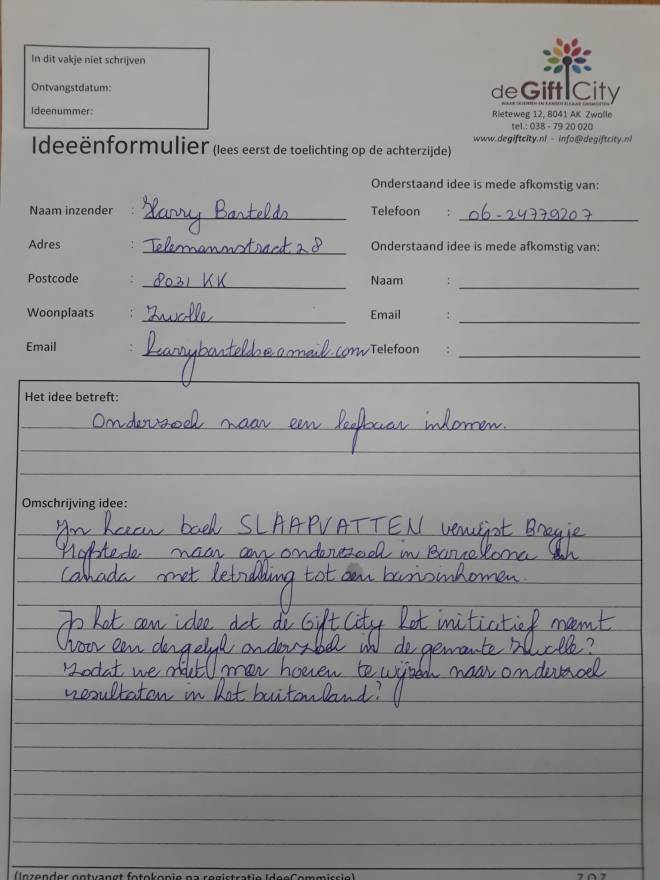 In dit vakje niet schrijven
Ontvangstdatum:
Ideenummer:
de Gift City
WAAR TALENTEN EN KANSEN ELKAAR ONTMOETEN
Rieteweg 12, 8041 AK Zwolle
tel.: 038 - 79 20 020
www.degiftcity.nl - info@degiftcity.nl
Ideeënformulier (lees eerst de toelichting op de achterzijde)
Onderstaand idee is mede afkomstig van:
Naam inzender : Harry Bartelds
Telefoon : 06-24779207
Adres : Telemannstraat 28
Onderstaand idee is mede afkomstig van:
Postcode : 8031 KK
Naam :
Woonplaats : Zwolle
Email :
Email : harrybartelds@gmail.com
Telefoon :
Het idee betreft:
Onderzoek naar een leefbaar inkomen.
Omschrijving idee:
In haar boek SLAAPVATTEN verwijst Bregje
Hofstede naar een onderzoek in Barcelona en
Canada met betrekking tot een basisinkomen.
Is het een idee dat de GiftCity het initiatief neemt
voor een dergelijk onderzoek in de gemeente Zwolle?
Zodat we niet meer hoeven te wijzen naar onderzoek
resultaten in het buitenland?
(Inzender ontvangt fotokopie na registratie IdeeCommissie)
Z.O.Z.